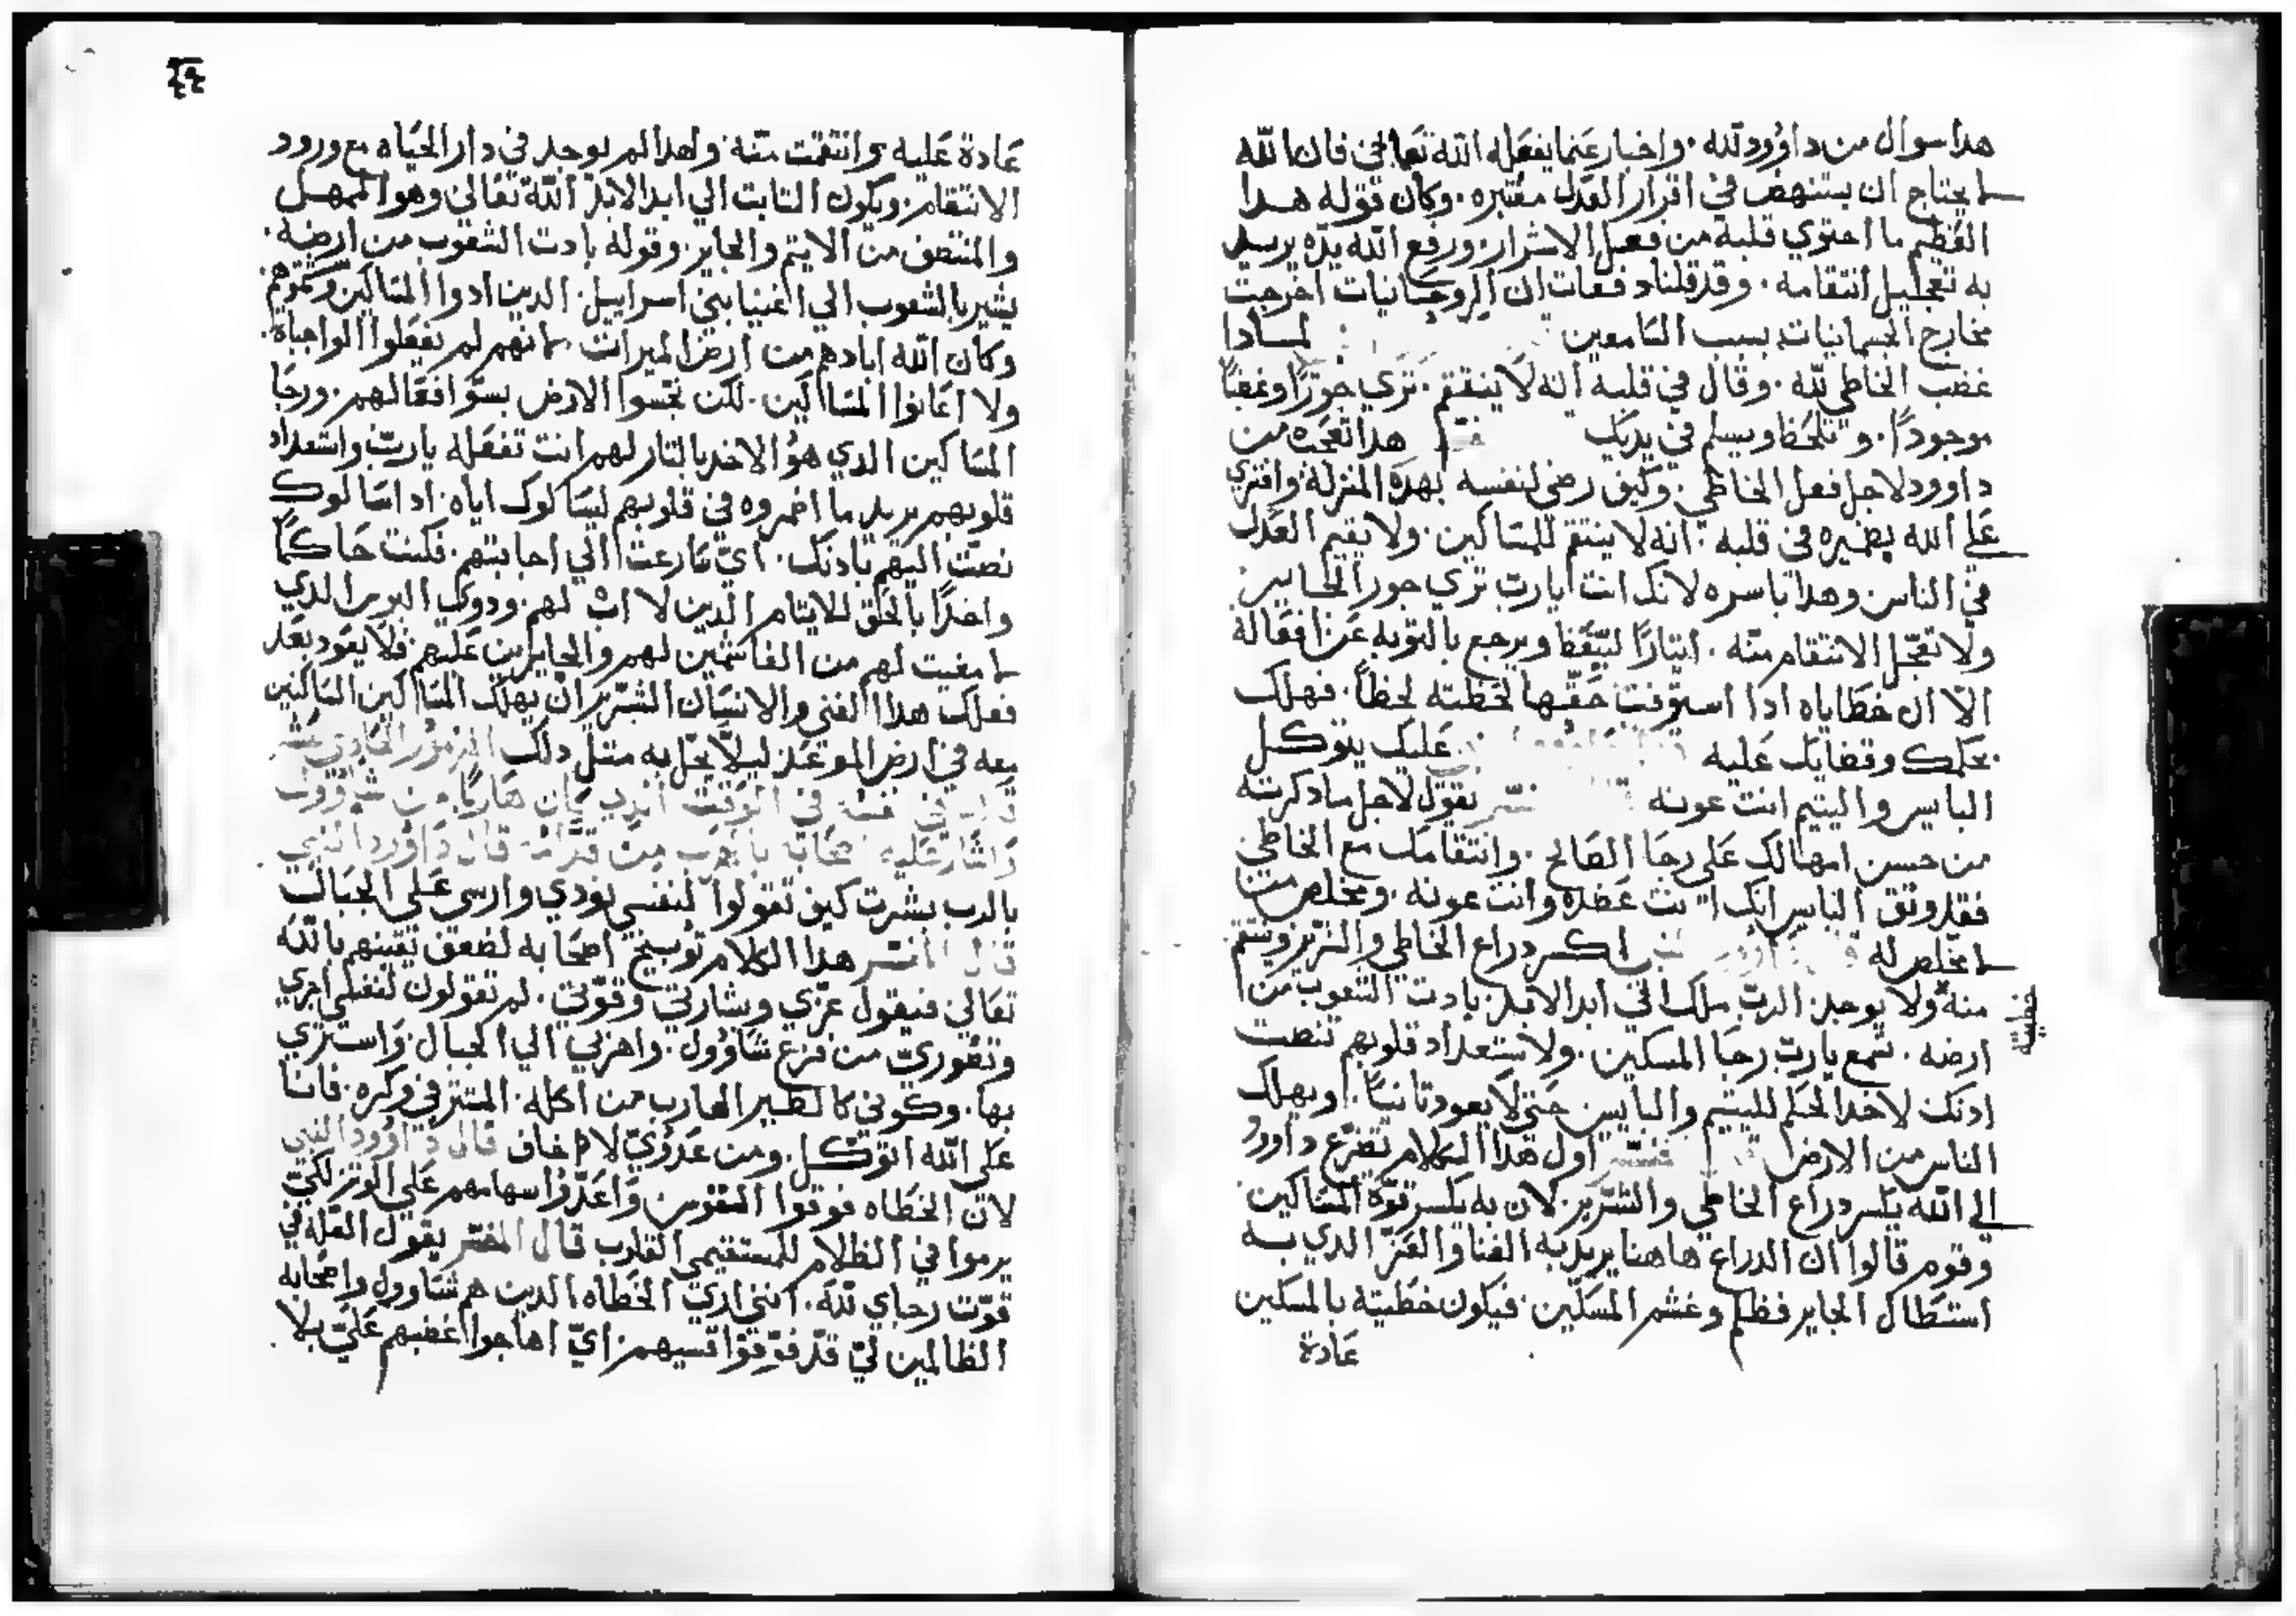 هدا سوال من داوود لله . واخبار عنما يفعله الله تعالي فان الله
لا يحتاج ان يستنهض في اقرار العدل معتبره . وكان قوله هدا
العظيم ما احتوي قلبه من فعل الاشرار . ورفع الله يده يريد
به تعجيل انتقامه . وقد قلنا دفعات ان الروحانيات اخرجت
مخارج الجسمانيات بسبب السامعين لمادا
غضب الخاطي لله . وقال في قلبه انه لا ينتقم . تري جورًا وغضبًا
موجودًا . و تلحظ ويسلم في يديك هدا تعجبه من
داوود لاجل فعل الخاطي . وكيف رضي لنفسه بهده المنزلة وافتري
علي الله بضميره في قلبه . انه لا ينتقم للمساكين . ولا يقيم العدل
في الناس وهدا باسره لانك انت يارب تري جور الجايرين
ولا تعجل الانتقام منه . ايتارًا ليتيقظ ويرجع بالتوبه عن افعاله
الا ان خطاياه ادا استوفت حقها لحظته لحظًا . فهلك
بحكمك وقضايك عليه عليك يتوكل
البايس واليتيم انت عونه يقول لاجل ما دكرته
من حسن امهالك علي رجا الصالح . وانتقامك مع الخاطي
فقد وتق البايس انك انت عضده وانت عونه . ومخلص من
لا مخلص له اكسر دراع الخاطي والشرير وينتقم
منه ولا يوجد . الرب ملك الي ابد الابد . بادت الشعوب من
خطيته
ارضه . تسمع يارب رجا المسكين . ولاستعداد قلوبهم تنصت
ادنك لاخد الحكم لليتيم والبايس حتي لا يعود تانيًا . ويهلك
الناس من الارض اول هدا الكلام تضرع داوود
الي الله بكسر دراع الخاطي والشرير . لان به تكسر قوة المساكين
وقوم قالوا ان الدراع هاهنا يريد به الغنا والعز الدي به
استطال الجاير فظلم وغشم المسكين . فيكون خطيته بالمسكين
عادة
عادة عليه وانتقمت منه . ولهدا لم يوجد في دار الحياه مع ورود
الانتقام . ويكون التابت الي ابد الابد الله تعالي وهو الممهل
والمنتصف من الاتيم والجاير . وقوله بادت الشعوب من ارضه .
يشير بالشعوب الي اغنيا بني اسراييل . الدين ادوا المساكين
وكان الله ابادهم من ارض الميرات . لانهم لم يفعلوا الواجبات .
ولا اعانوا المساكين . لكن نجسوا الارض بسو افعالهم . ورجا
المساكين الدي هو الاخد بالتار لهم انت تفعله يارب واستعداد
قلوبهم يريد ما اضمروه في قلوبهم ليسالوك اياه . ادا سالوك
نصت اليهم بادنك . اي سارعت الي اجابتهم . فكنت حاكمًا
واخدًا بالحق للايتام الدين لا اب لهم . ودوي البوس الدي
لا مغيت لهم من الغاشمين لهم والجايرين عليهم فلا يعود بعد
فعلك هدا الغني والانسان الشرير ان يهلك المساكين الساكنين
معه في ارض الموعد ليلا يحل به متل دلك المزمور الحادي عشر
في الوقت الدي كان هاربًا من شاوول
واشار عليه اصحابه بالهرب من قدامه قال داوود النبي
بالرب بشرت كيف تقولوا لنفسي نودي وارسي علي الجبال
قال المفسر هدا الكلام توبيخ اصحابه لضعف تقتهم بالله
تعالي فيقول عزي وبشارتي وقوتي . لم تقولون لنفسي اجري
وتغوري من فزع شاوول . واهربي الي الجبال واستتري
بها . وكوني كالطير الهارب من اكله . المستتر في وكره . فانا
علي الله اتوكل . ومن عدوي لا اخاف قال داوود النبي
لان الخطاه فوقوا القوس واعدوا سهامهم علي الوتر لكي
يرموا في الظلام للمستقيمي القلوب قال المفسر يقول العله في
قوت رجاي لله . انني اري الخطاه الدين هم شاوول واصحابه
الظالمين لي قد فوقوا قسيهم . اي اهاجوا غضبهم علي بلا